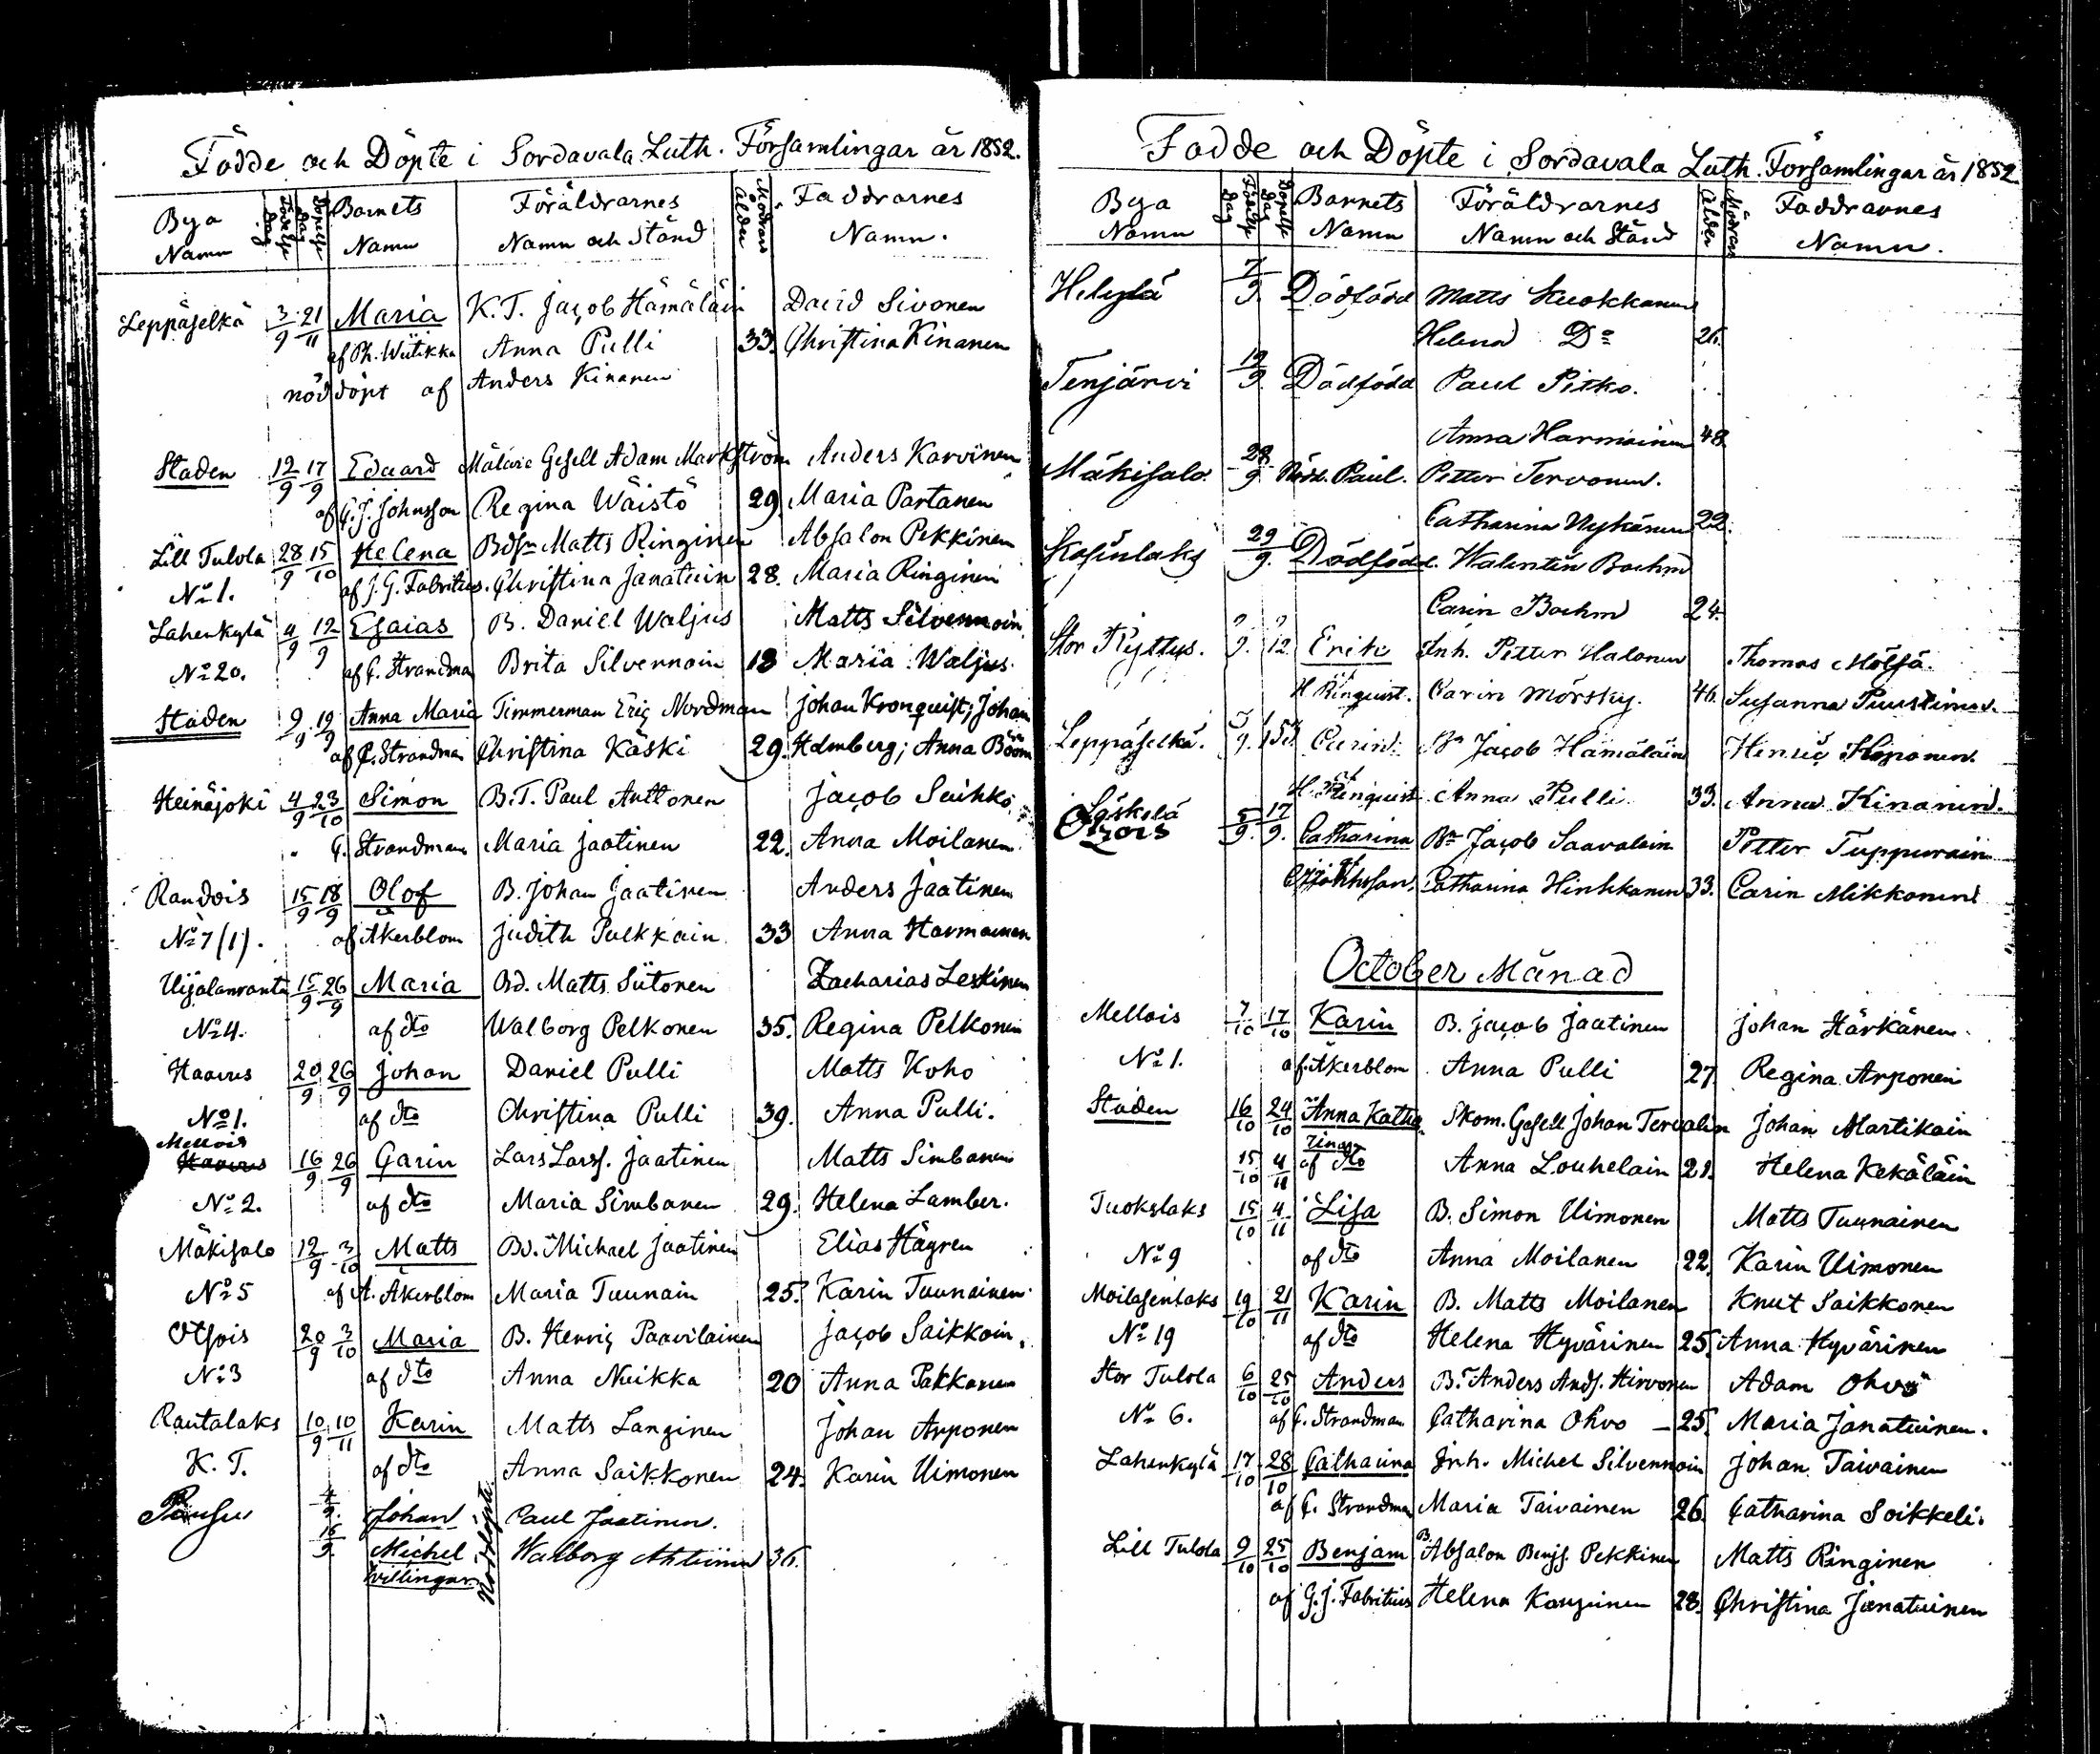 Födde och Döpte i Sordavala Luth. Församlingar år 1852.
Bya Namn Födelse Dag Döpelse Dag Barnets Namn Föräldrarnes Namn och Stånd Modrens ålder Faddrarnes Namn.
Leppäselkä 3/9 21/11 Maria K. T. Jacob Hämäläin David Sivonen
af Ph. Wiitikka Anna Pulli 33. Christina Kinanen
nöddöpt af Anders Kinanen
Staden 12/9 17/9 Edvard Målare Gesell Adam Markström Anders Karvinen
af J. Johnsson Regina Wäistö 29. Maria Partanen
Lill Tulola 28/9 15/10 Helena Matts Ringinen Absalon Pekkinen
No 1. af J. G. Fabritius. Christina Janatuin 28. Maria Ringinen
Lahenkylä 4/9 12/9 Esaias B. Daniel Waljus Matts Silvennoin
No 20. af C. Strandman Brita Silvennoin 18 Maria Waljus.
Staden 9/9 19/9 Anna Maria Timmerman Eric Nordman Johan Kronquist; Johan
af C. Strandman Christina Käski 29. Holmberg; Anna
Heinäjoki 4/9 23/10 Simon B. T. Paul Anttonen Jacob Saihko
C. Strandman Maria Jaatinen 22. Anna Moilanen
Raudois 15/9 18/9 Olof B. Johan Jaatinen Anders Jaatinen
No 7 (1). af Åkerblom Judith Pulkkain 33 Anna Harmainen
Uijalanranta 15/9 26/9 Maria Bd. Matts Siitonen Zacharias Leskinen
No 4. af dto Walborg Pelkonen 35. Regina Pelkonen
Haavus 20/9 26/9 Johan Daniel Pulli Matts Koho
No 1. af dto Christina Pulli 39. Anna Pulli.
Mellois
Haavus 16/9 26/9 Carin Lars Larss. Jaatinen Matts Simbanen
No 2. af dto Maria Simbanen 29. Helena Lamber.
Mäkisalo 12/9 3/10 Matts Bd. Michael Jaatinen Elias Hägren
No 5 af A. Åkerblom Maria Tuunain 25. Karin Tuunainen
Otsois 20/9 3/10 Maria B. Henric Paavilainen Jacob Saikkoin.
No 3 af dto Anna Neikka 20 Anna Pakkanen
Rautalaks 10/9 10/11 Karin Matts Langinen Johan Arponen
K. T. af dto Anna Saikkonen 24. Karin Uimonen
4/9. Johan Paul Jaatinen.
16/9. Michel Walborg 36.
tvillingar. Nöddöpte.
Födde och Döpte i Sordavala Luth. Församlingar år 1852.
Bya Namn Födelse Dag Döpelse Dag Barnets Namn Föräldrarnes Namn och Stånd Modrens ålder Faddrarnes Namn.
Helylä 7/9. Dödfödd Matts Kuokkanen
Helena Do 26.
Tenjärvi 19/9. Dödfödd Paul Pitko.
Anna Harmainen 48.
Mäkisalo. 28/9 Nödd. Paul. Petter Tervonen.
Catharina Nykänen 22.
29/9. Dödfödd. Walentin Boehm
Carin Boehm 24.
Stor Ryttys. 9/9. 9/12 Erik Inh. Petter Halonen Thomas Mölsä.
H. Ringquist. Carin Mörsky. 46. Susanna Puustinen.
Leppäselkä. Carin. Bn Jacob Hämäläin
H. Ringquist Anna Pulli. 33. Anna Kinanen.
Läskelä
5/9. 17/9. Catharina Bn Jacob Saavalain Petter Tuppurain
Johnsson. Catharina Hinkkanen 33. Carin Mikkonen
October Månad
Mellois 7/10 17/10 Karin B. Jacob Jaatinen Johan Härkänen.
No 1. af Åkerblom Anna Pulli 27 Regina Arponen
Staden 16/10 24/10 Anna Katha- Skom. Gesell Johan Tervalin Johan Martikain
rina
15/10 4/11 af dto Anna Louhelain 21. Helena Kekäläin
Tuokslaks 15/10 4/11 Lisa B. Simon Uimonen Matts Tuunainen
No 9 af dto Anna Moilanen 22. Karin Uimonen
Moilasenlaks 19/10 21/11 Karin B. Matts Moilanen Knut Saikkonen
No 19 af dto Helena Hyvärinen 25. Anna Hyvärinen
Stor Tulola 6/10 25/10 Anders B. Anders Ands. Hirvonen Adam Ohvo
No 6. af C. Strandman Catharina Ohvo - 25. Maria Janatuinen.
Lahenkylä 17/10 28/10 Catharina Inh. Michel Silvennoin Johan Taivainen
af C. Strandman Maria Taivainen 26. Catharina Soikkeli.
Lill Tulola 9/10 25/10 Benjam B. Absalon Benjs. Pekkinen Matts Ringinen
af G. J. Fabritius Helena 28. Christina Janatuinen